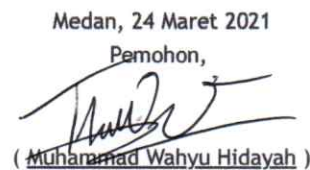 Medan, 24 Maret 2021
Pemohon,
( Muhammad Wahyu Hidayah )